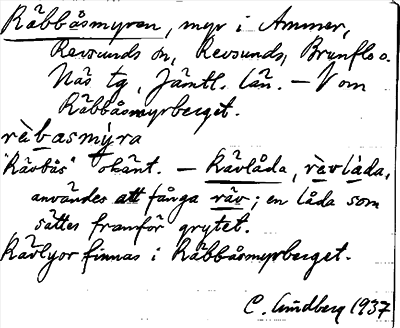 Räbbåsmyren, myr i Ammer,
Revsunds sn, Revsunds, Brunflo o.
Näs tg, Jämtl. län. – V om
Räbbåsmyrberget.
rèbasmy̆ra
"Rävbås" okänt. – Rävlåda, rèvlåda,
användes att fånga räv; en låda som
sättes framför grytet.
Rävlyor finnas i Räbbåsmyrberget.
C. Lundberg 1937